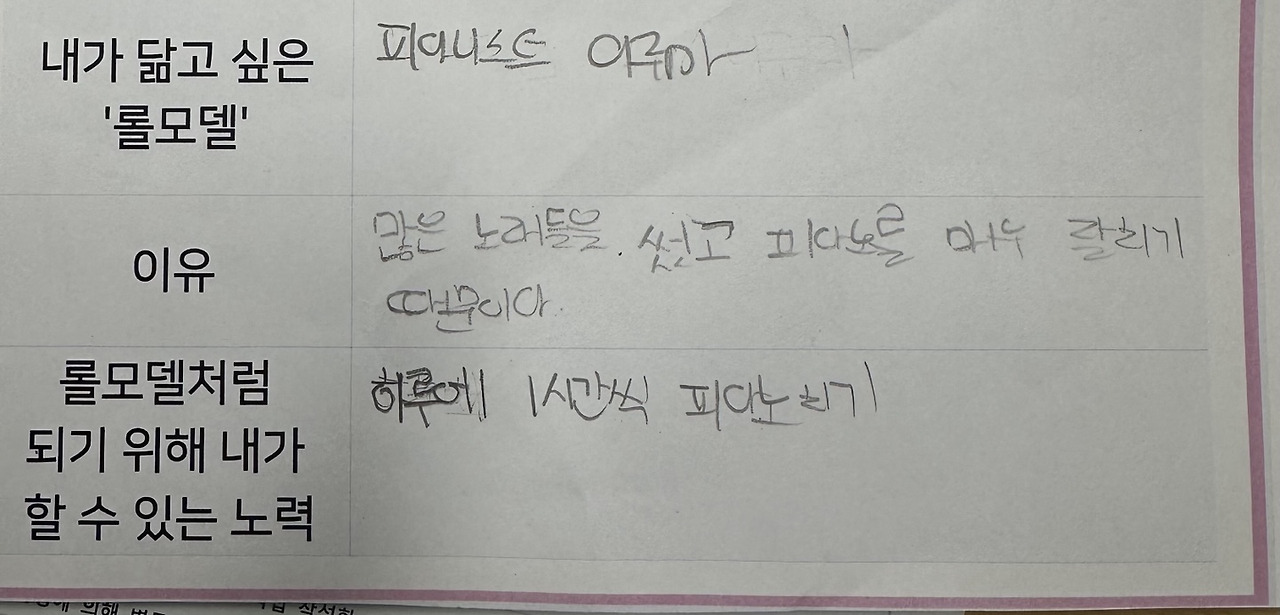 내가 닮고 싶은
'롤모델'
피아니스트 이루마
이유
많은 노래들을 썼고 피아노를 매우 잘치기
때문이다.
롤모델처럼
되기 위해 내가
할 수 있는 노력
하루에 1시간씩 피아노치기